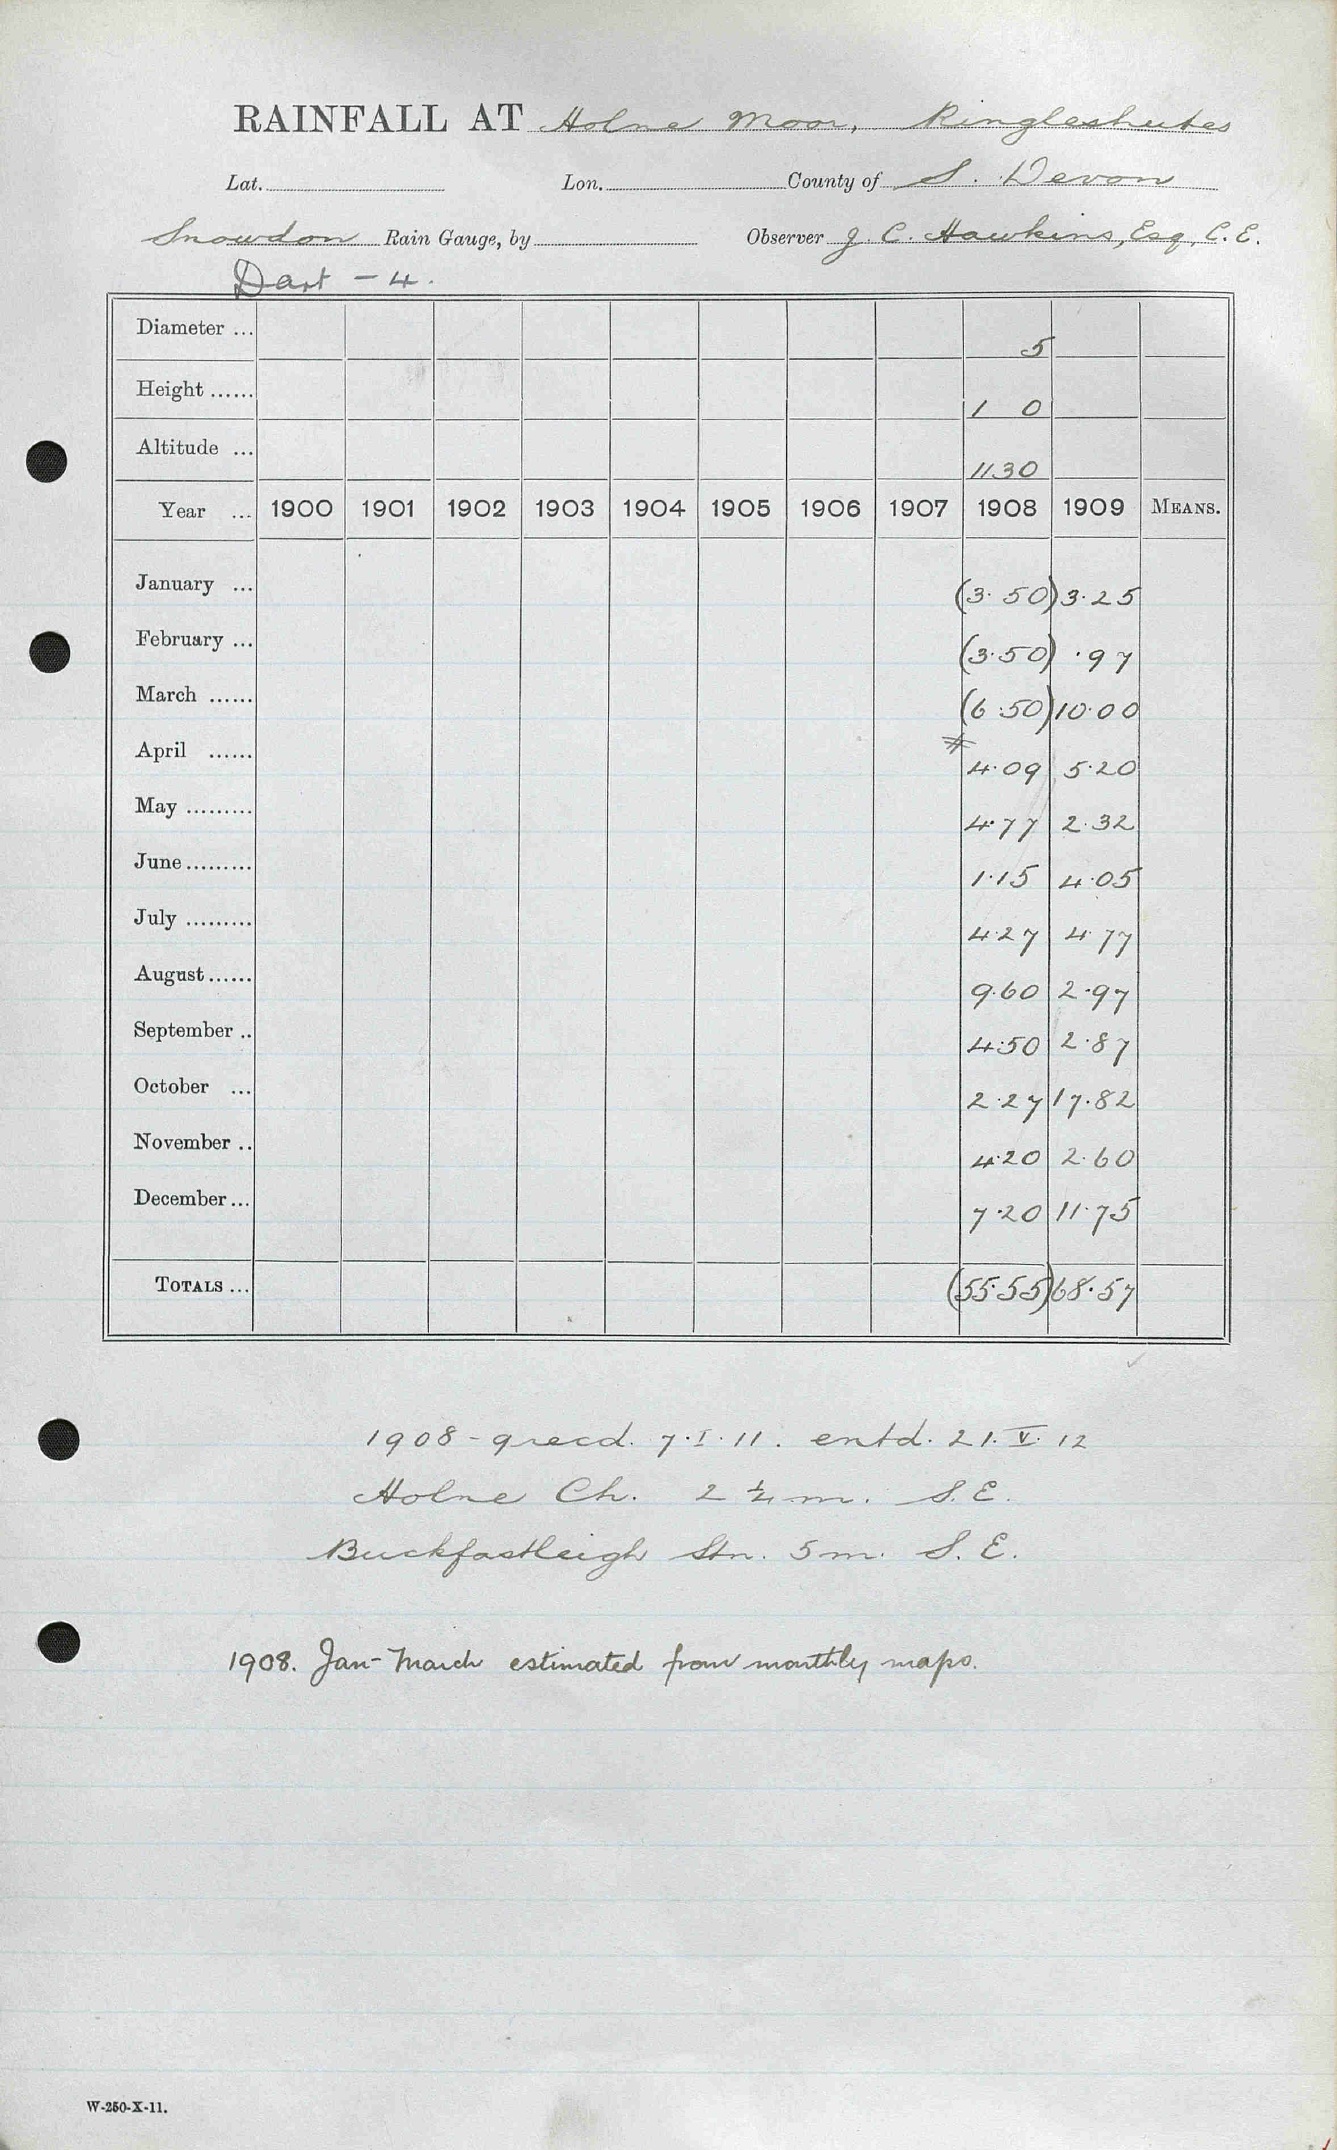 RAINFALL AT Holne Moor, Ringleshutes
Lat. Lon. County of S. Devon
Snowdon Rain Gauge, by Observer J. C. Hawkins, Esq, C. E.
Dart - 4.
Diameter ... 5
Height ...... 1 0
Altitude ... 1130
Year ... 1900 1901 1902 1903 1904 1905 1906 1907 1908 1909 MEANS.
January ... (3.50) 3.25
February ... (3.50) .97
March ...... (6.50) 10.00
April ...... # 4.09 5.20
May ......... 4.77 2.32
June ......... 1.15 4.05
July ......... 4.27 4.77
August ...... 9.60 2.97
September .. 4.50 2.87
October ... 2.27 17.82
November .. 4.20 2.60
December ... 7.20 11.75
TOTALS ... (55.55) 68.57
1908 - 9 recd. 7.I.11. entd. 21.V.12
Holne Ch. 2 1/4 m. S.E.
Buckfastleigh Stn. 5 m. S.E.
1908. Jan - March estimated from monthly maps.
W-250-X-11.